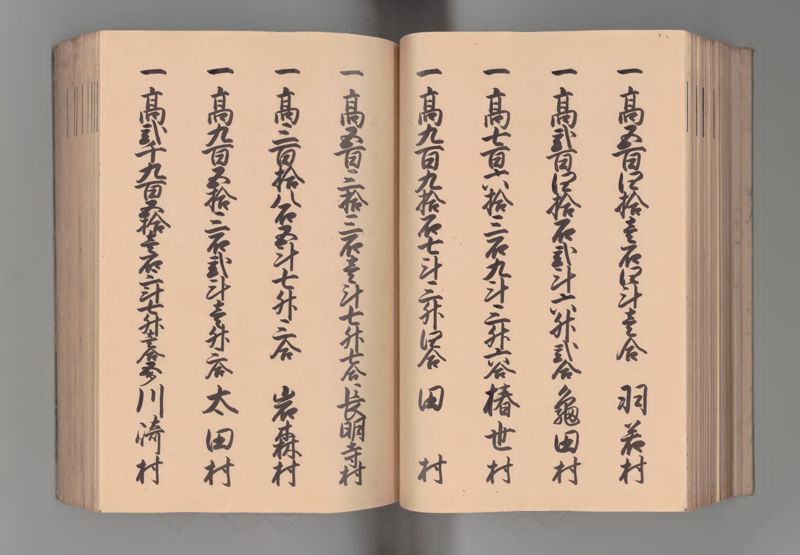 一 高五百四拾壱石四斗壱合 羽若村
一 高弐百四拾石弐斗六升弐合 亀田村
一 高七百六拾三石九斗三升六合 椿世村
一 高九百九拾石七斗三升四合 田村
一 高五百三拾三石壱斗七升七合 長明寺村
一 高三百拾八石五斗七升三合 岩森村
一 高九百五拾三石弐斗壱升六合 太田村
一 高弐千九百五拾壱石三斗七升三合 川崎村